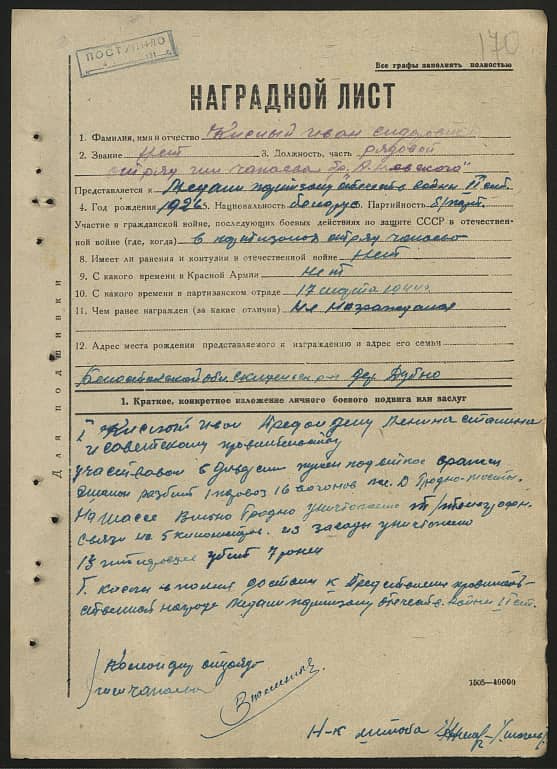 170
ПОСТУПИЛО
Все графы заполнять полностью
НАГРАДНОЙ ЛИСТ
1. Фамилия, имя и отчество Кислый Иван
2. Звание Нет 3. Должность, часть рядовой
отряд им чапаева бр. А. Невского
Представляется к Медали партизану отечеств войны II ст.
4. Год рождения 1926 5. Национальность белорус Партийность б/парт.
Участие в гражданской войне, последующих боевых действиях по защите СССР в отечествен-
ной войне (где, когда) в партизанск отряд чапаева
8. Имеет ли ранения и контузии в отечественной войне Нет
9. С какого времени в Красной Армии Нет
10. С какого времени в партизанском отряде 17 марта
11. Чем ранее награжден (за какие отличия) Не награждался
12. Адрес места рождения представляемого к награждению и адрес его семьи
Белостокской обл дер. Дубно
1. Краткое, конкретное изложение личного боевого подвига или заслуг
Иван Предан делу Ленина Сталина
и советскому правительству
участвовал в
эшалон разбит 1 паровоз 16 вагонов ж. д Гродно-мосты.
На шассе Вильно Гродно уничтожено
связи на 5 километров. из засады уничтожено
убит 7 ранен
достоин к Представлению правитель-
ственной награде Медали партизану отечеств. войны II ст.
Командир отряда
им чапаева
Н-к штаба
Для подшивки
1505—40000